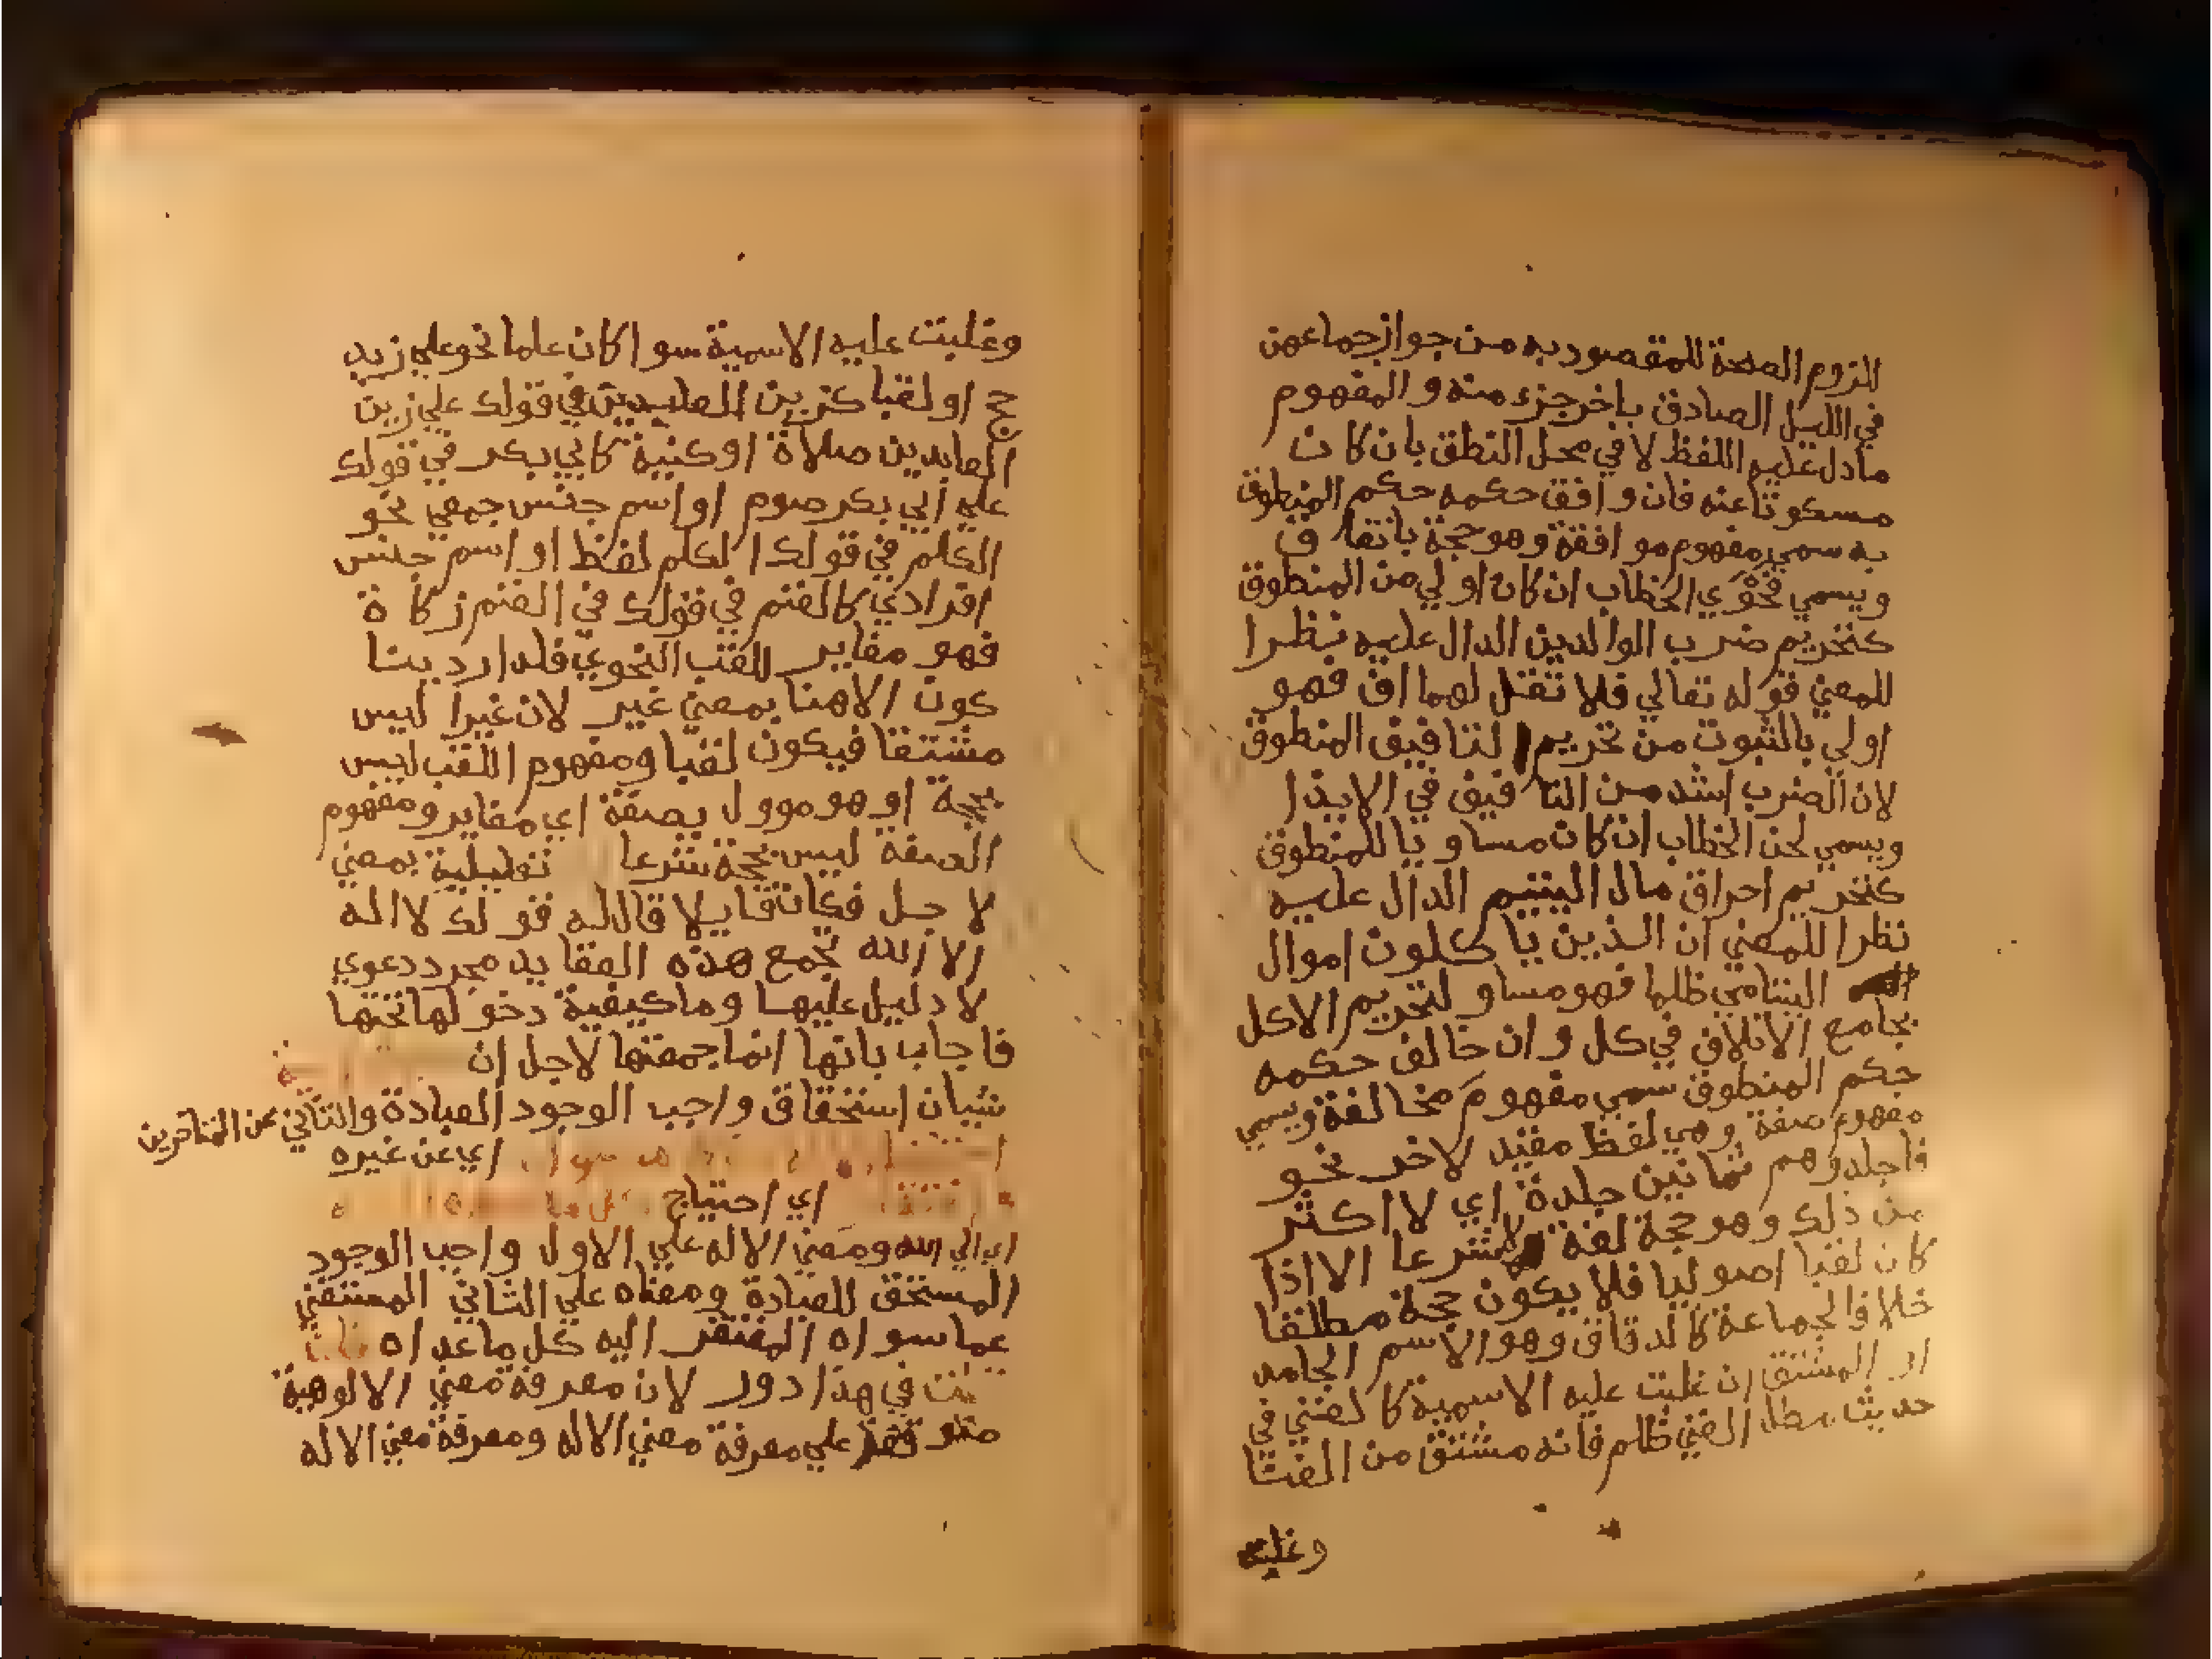 للزوم الصحة للمقصود به من جواز جماعهن
في الليل الصادق باخر جزء منه والمفهوم
ما دل عليه اللفظ لا في محل النطق بان كان
مسكوتا عنه فان وافق حكمه حكم المنطوق
به سمي مفهوم موافقة وهو حجة باتفاق
ويسمي فَحْوَي الخطاب ان كان اولي من المنطوق
كتحريم ضرب الوالدين الدال عليه نظرا
للمعني قوله تعالي فلا تقل لهما اف فهو
اولي بالثبوت من تحريم التافيف المنطوق
لان الضرب اشد من التا فيف في الايذا
ويسمي لحن الخطاب ان كان مساويا للمنطوق
كتحريم احراق مال اليتيم الدال عليه
نظرا للمعني ان الذين ياكلون اموال
اليتامي ظلما فهو مساو لتحريم الاكل
بجامع الاتلاف في كل وان خالف حكمه
حكم المنطوق سمي مفهوم مخالفة ويسمي
مفهوم صفة وهي لفظ مقيد لاخر نحو
فاجلدوهم ثمانين جلدة اي لا اكثر
من ذلك وهو حجة لغة لا شرعا الا اذا
كان لقبا اصوليا فلا يكون حجة مطلقا
خلافا لجماعة كالدقاق وهو الاسم الجامد
او المشتق ان غلبت عليه الاسمية كالغني في
حديث مطل الغني ظلم فانه مشتق من الغنا
وغلبت
وغلبت عليه الاسمية سوا كان علما نحو علي زيد
حج او لقبا كزين العابدين في قولك علي زين
العابدين صلاة او كنية كابي بكر في قولك
علي ابي بكر صوم او اسم جنس جمعي نحو
الكلم في قولك الكلم لفظ او اسم جنس
افرادي كالغنم في قولك في الغنم زكاة
فهو مغاير للقب النحوي فلدا ردبنا
كون الاهنا بمعني غير لان غيرا ليس
مشتقا فيكون لقبا ومفهوم اللقب ليس
بحجة او هو موول بصفة اي مغاير ومفهوم
الصفة ليس بحجة شرعا تعليلية بمعني
لاجل فكان قايلا قال له قولك لا اله
الا الله تجمع هذه العقايد مجرد دعوي
لا دليل عليها وما كيفية دخولها تحتها
فاجاب بانها انما جمعتها لاجل ان
شيان استحقاق واجب الوجود العبادة والثاني عن المتاخرين
اي عن غيره
اي احتياج
اي الي الله ومعني الاله علي الاول واجب الوجود
المستحق للعبادة ومعناه علي الثاني المستغني
عما سواه المفتقر اليه كل ما عداه
في هذا دور لان معرفة معني الالوهية
علي معرفة معني الاله ومعرفة معني الاله